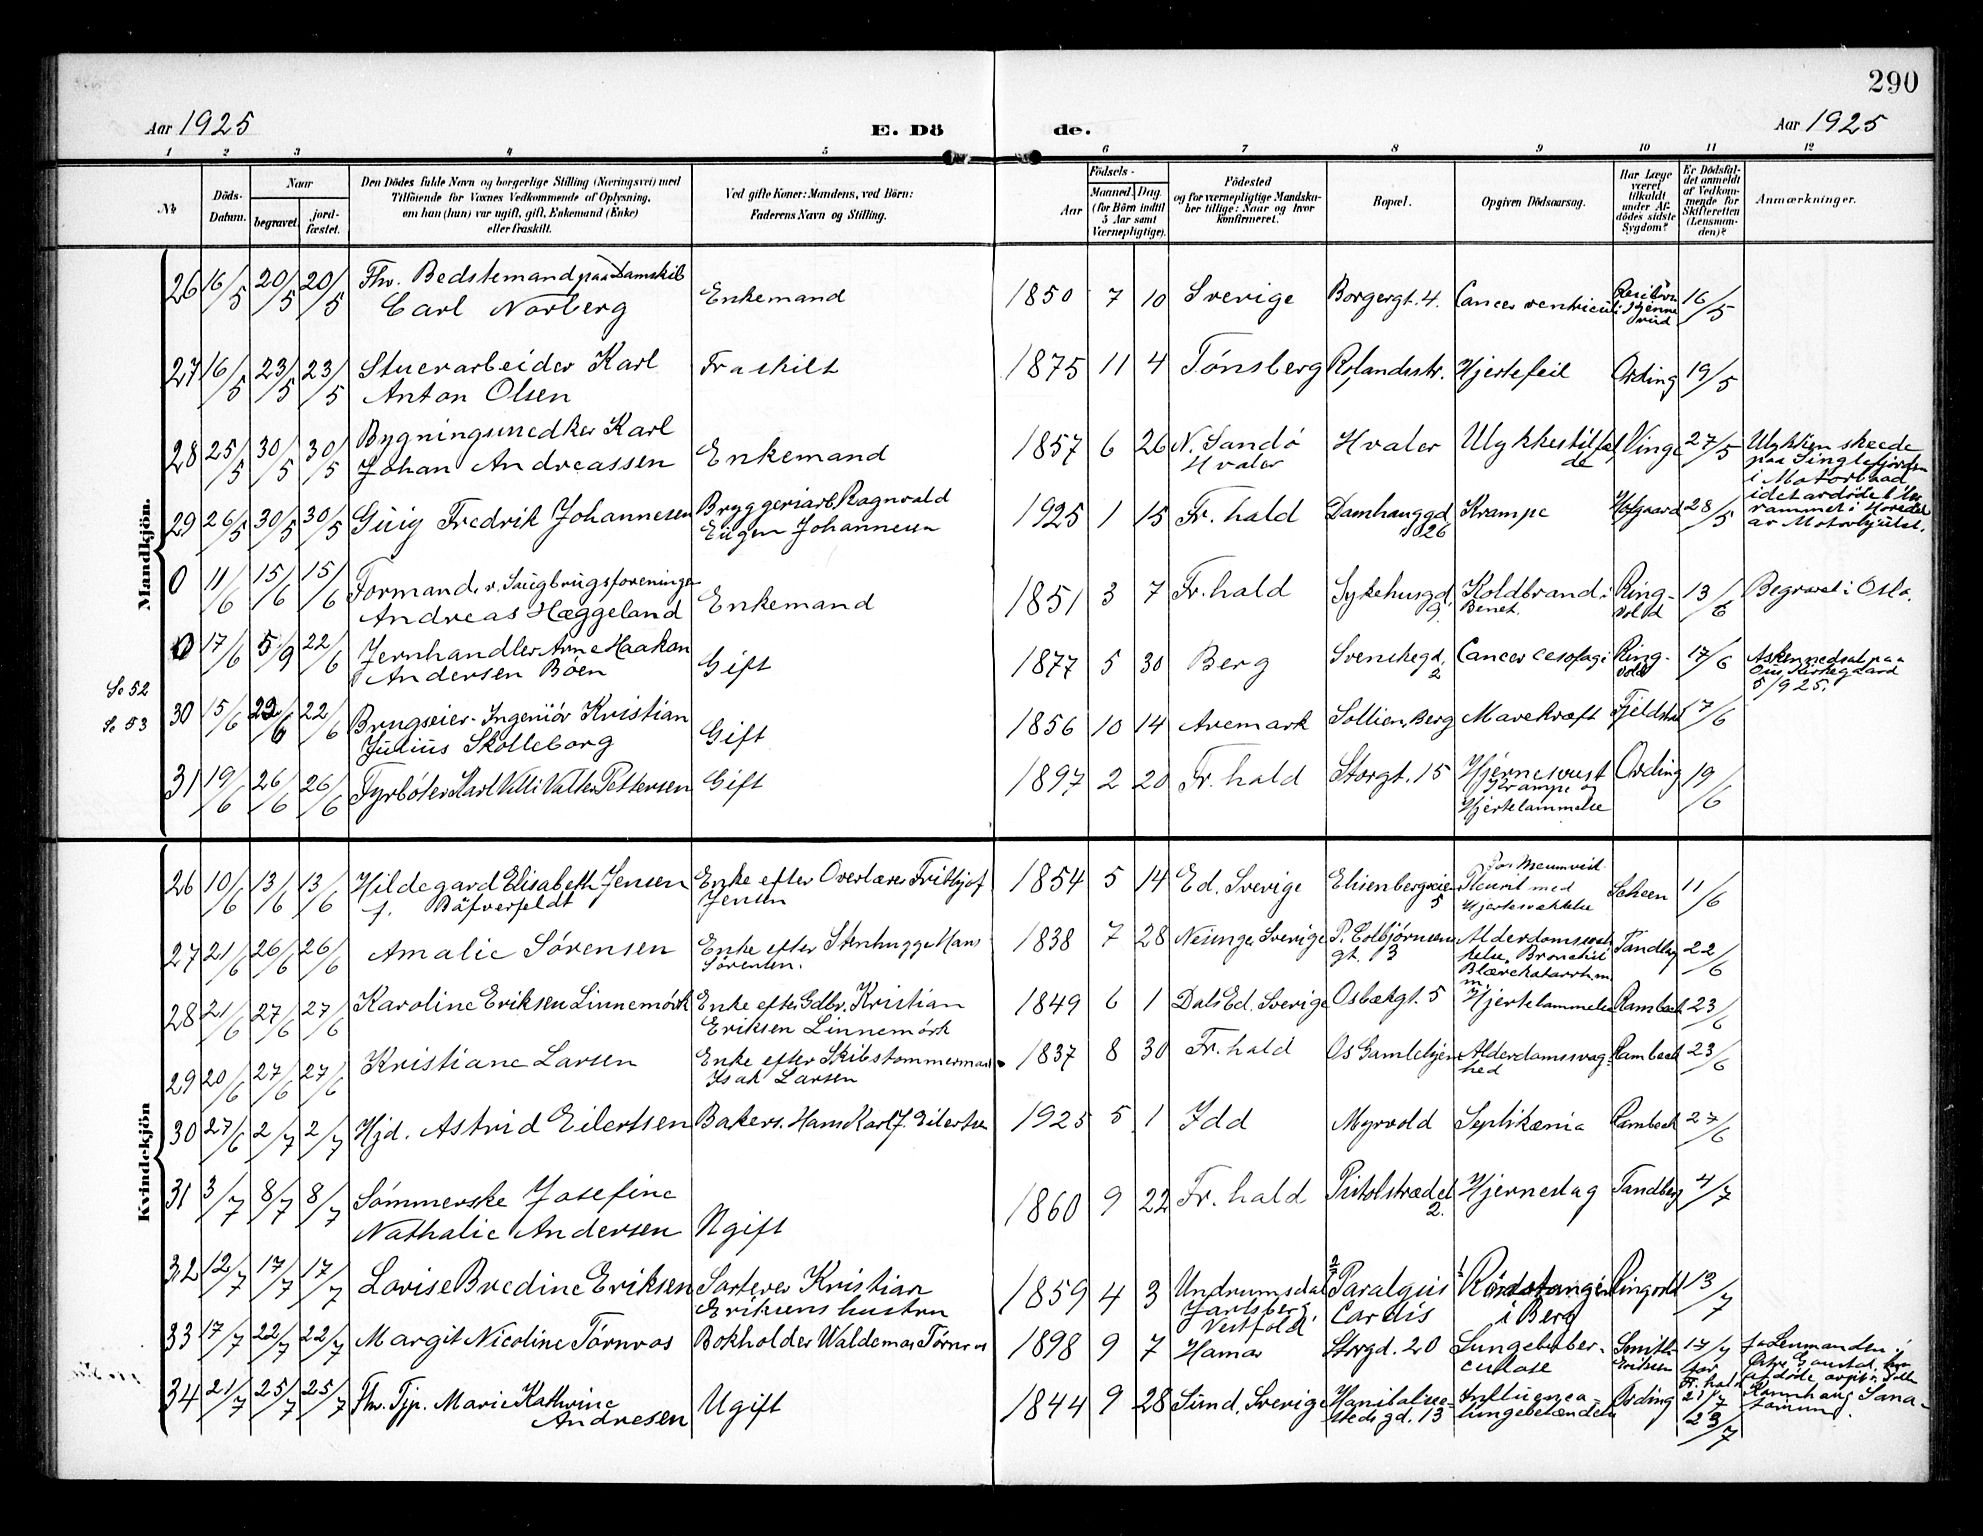 290
Aar 1925 E. Dö de. Aar 1925
1 2 3 4 5 6 7 8 9 10 11 12
№
Döds-Datum.
Naar
begravet.
jord-fæstet.
Den Dödes fulde Navn og borgerlige Stilling (Næringsvei) med
Tilföiende for Voxnes Vedkommende af Oplysning,
om han (hun) var ugift, gift, Enkemand (Enke)
eller fraskilt.
Ved gifte Koner: Mandens, ved Börn:
Faderens Navn og Stilling.
Födsels-
Aar
Maaned. Dag.
(for Börn indtil
5 Aar samt
Værnepligtige).
Födested
og for værnepligtige Mandska-
ber tillige: Naar og hvor
konfirmeret.
Bopæl.
Opgiven Dödsaarsag.
Har Læge
været
tilkaldt
under Af-
dödes sidste
Sygdom?
Er Dödsfal-
det anmeldt
af Vedkom-
mende for
Skifteretten
(Lensman-
den)?
Anmærkninger.
Mandkjön.
26 16/5 20/5 20/5 Fhv. Bedstemand paa Damskib
Carl Norberg Enkemand 1850 7 10 Sverige Borgergt. 4. Cancer ventriculi 16/5
27 16/5 23/5 23/5 Stuerarbeider Karl
Anton Olsen Fraskilt 1875 11 4 Tønsberg Rolandsstr. Hjertefeil Ording 19/5
28 25/5 30/5 30/5 Bygningssnedker Karl
Johan Andreassen Enkemand 1857 6 26 N. Sandö
Hvaler Hvaler Ulykkestilfæl
de Vinge 27/5 Ulykken skeede
paa Singlefjorden
i Motorbaad
idet avdöde blev
rammet i Hovedet
av Motorhjulet.
29 26/5 30/5 30/5 Guig Fredrik Johannesen Bryggeriarb. Ragnvald
Eugen Johannesen 1925 1 15 Fr. hald Damhauggd
1026 Krampe Hofgaard 28/5
0 11/6 15/6 15/6 Formand v. Saugbrugsforeningen
Andreas Hæggeland Enkemand 1851 3 7 Fr. hald Sykehusgd.
9. Koldbrand i
Benet. Ring-
vold 13/6 Begravet i Oslo.
0 17/6 5/9 22/6 Jernhandler Arne Haakon
Andersen Böen Gift 1877 5 30 Berg Svenskegd.
2 Cancer oesofagi Ring-
vold 17/6 Asken nedsat paa
Os Kirkegaard
5/9 25.
So 52
So 53
30 15/6 22/6 22/6 Brugseier-Ingeniör Kristian
Julius Skolleborg Gift 1856 10 14 Aremark Sollien, Berg Mavekræft Fjeldstad 17/6
31 19/6 26/6 26/6 Fyrböter Karl Villi Valter Pettersen Gift 1897 2 20 Fr. hald Storgt. 15 Hjernesvust
Krampe og
Hjertelammelse Ording 19/6
Kvindekjön
26 10/6 13/6 13/6 Hildegard Elisabeth Jensen
f. Bäfverfeldt Enke efter Overlærer Frithjof
Jensen 1854 5 14 Ed. Sverige Elisenbergveien
5 Pleurit med
Hjertesvækkelse Scheen 11/6
27 21/6 26/6 26/6 Amalie Sørensen Enke efter Stenhugger Hans
Sørensen. 1838 7 28 Sverige P. Colbjörnsens
gt. 13 Alderdomssvæk
kelse, Bronchit
Blærekatarrh m
m. Tandberg 22/6
28 21/6 27/6 27/6 Karoline Eriksen Linnemörk Enke efter Gdbr. Kristian
Eriksen Linnemörk 1849 6 1 Dals Ed. Sverige Osbækgt. 5 Hjertelammelse Rambech 23/6
29 20/6 27/6 27/6 Kristiane Larsen Enke efter Skibstömmermand
Isak Larsen 1837 8 30 Fr. hald Os Gamlehjem Alderdomssvag-
hed Rambech 23/6
30 27/6 2/7 2/7 Hjd. Astrid Eilertsen Bakers. Hans Karl J. Eilertsen 1925 5 1 Idd Myrvold Septikæmia Rambech 27/6
31 3/7 8/7 8/7 Sömmerske Josefine
Nathalie Andersen Ugift 1860 9 22 Fr. hald Pistolstrædet
2. Hjerneslag Tandberg 4/7
32 12/7 17/7 17/7 Lovise Bredine Eriksen Sorterer Kristian
Eriksens hustru 1859 4 3 Undrumsdal
Jarlsberg
Vestfold 2/ Paralysis
Cordis 1/ Rödstangen
i Berg Ringvold 13/7
33 17/7 22/7 22/7 Margit Nicoline Törnros Bokholder Waldemar Törnros 1898 9 7 Hamar Storgd. 20 Lungetuber-
culose Smith
Eriksen 17/7 for
Fr. hald
21/7 f. Lensmanden i
Gausdal, hun
afdöde avgik
Sana-
torium.
34 21/7 25/7 25/7 Fhv. Tjp. Marie Kathrine
Andresen Ugift 1844 9 28 Sund, Sverige Hanibalsve-
stedsgd. 13 Influensa-
lungebetændelse Ording 23/7